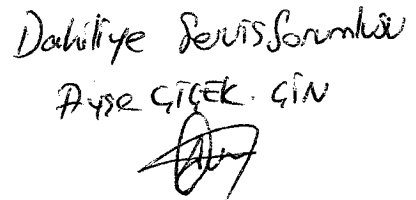 Dahiliye Servis Sorumlusu
Ayşe ÇİÇEK. ÇİN